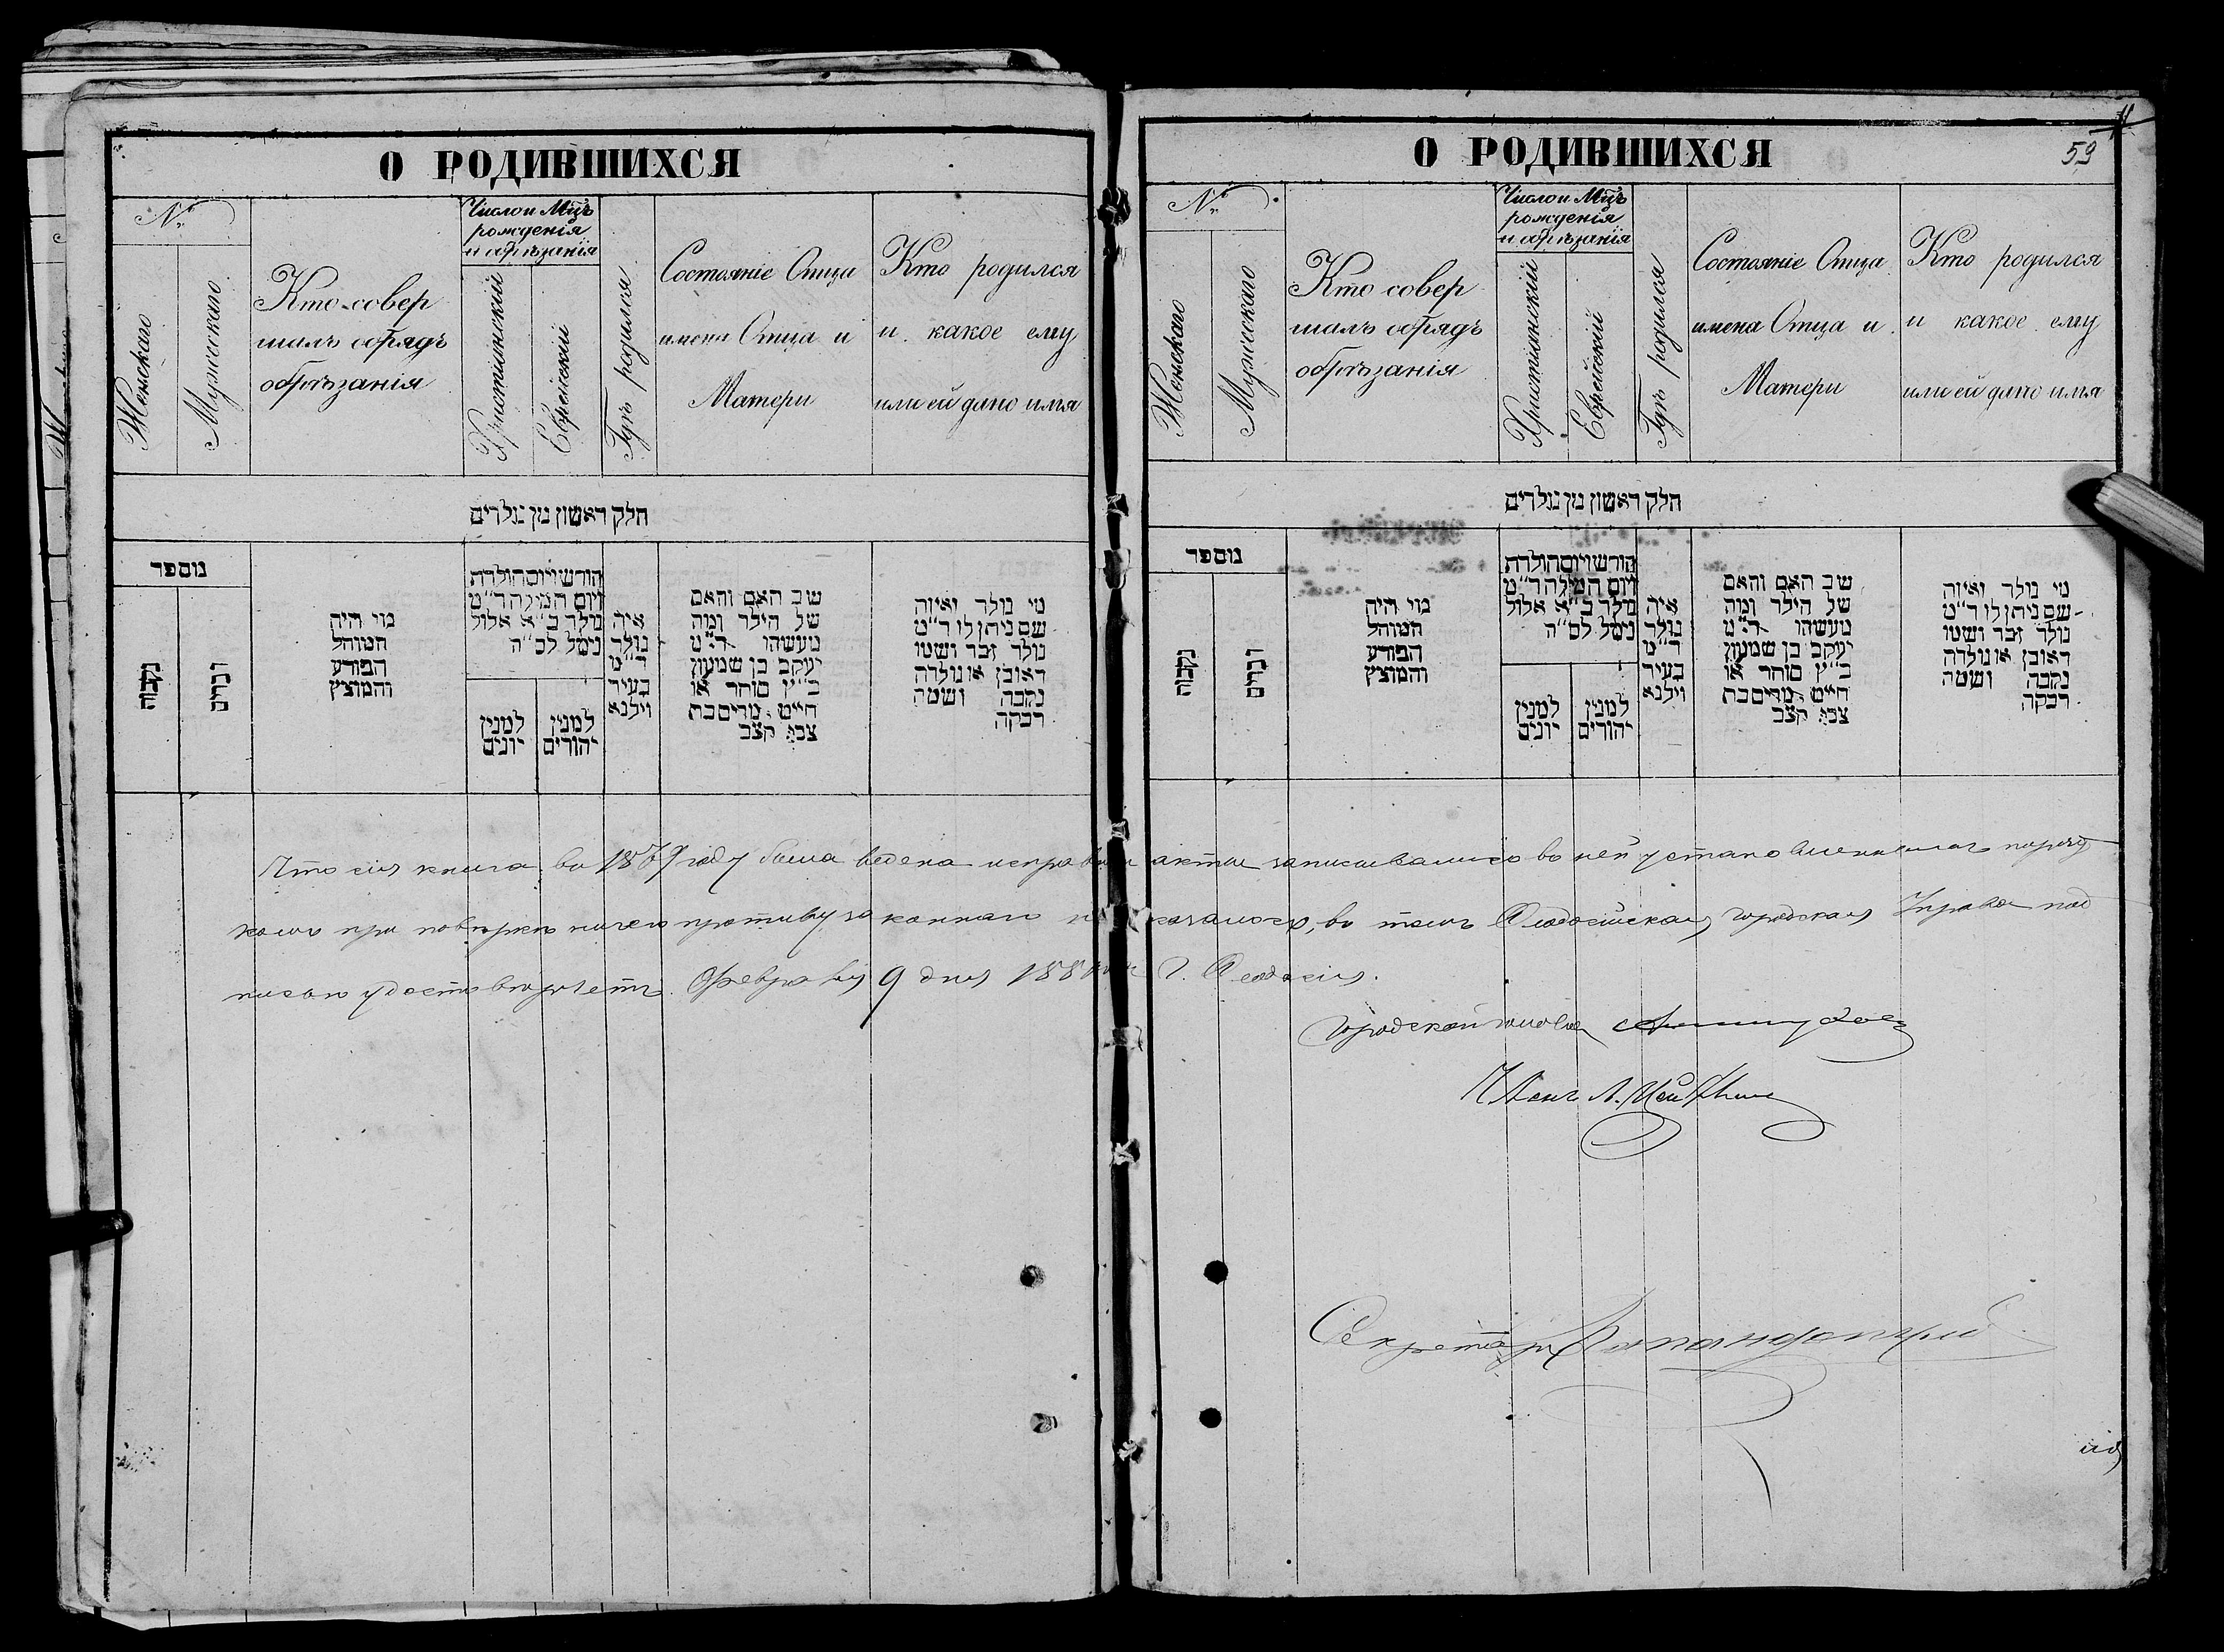 О РОДИВШИХСЯ
№
Женскаго
Мужескаго
Кто совер
шалъ обрядъ
обрѣзанія
Число и Мцъ
рожденія
и обрѣзанія
Христіанскій
Еврейскій
Гдѣ родился
Состояніе Отца
имена Отца и
Матери
Кто родился
и какое ему
или ей дано имя
חלק ראשון מן נולדים
מספר
נקבות
זכרים
מי היה
המוהל
הפורע
והמוצץ
חודש ויום הולדת
ויום המילה ד"מ
נולד ב"א אלול
נימל לס"ה
למנין
יונים
למנין
יהודים
איה
נולד
ד"מ
בעיר
וילנא
שם האב והאם
של הילד ומה
מעשהו ד"מ
יעקב בן שמעון
כ"ץ סוחר או
חייט מרים בת
צבי קצב
מי נולד ואיזה
שם ניתן לו ד"מ
נולד זכר ושמו
ראובן או נולדה
נקבה ושמה
רבקה
О РОДИВШИХСЯ
59
№
Женскаго
Мужескаго
Кто совер
шалъ обрядъ
обрѣзанія
Число и Мцъ
рожденія
и обрѣзанія
Христіанскій
Еврейскій
Гдѣ родился
Состояніе Отца
имена Отца и
Матери
Кто родился
и какое ему
или ей дано имя
חלק ראשון מן נולדים
מספר
נקבות
זכרים
מי היה
המוהל
הפורע
והמוצץ
חודש ויום הולדת
ויום המילה ד"מ
נולד ב"א אלול
נימל לס"ה
למנין
יונים
למנין
יהודים
איה
נולד
ד"מ
בעיר
וילנא
שם האב והאם
של הילד ומה
מעשהו ד"מ
יעקב בן שמעון
כ"ץ סוחר או
חייט מרים בת
צבי קצב
מי נולד ואיזה
שם ניתן לו ד"מ
נולד זכר ושמו
ראובן או נולדה
נקבה ושמה
רבקה
Что сія книга въ 1879 году была ведена исправно и акты записывались въ ней установленнымъ поряд
комъ при повѣркѣ ничего противузаконнаго не оказалось, въ томъ Ѳеодосійская Городская Управа под
писью удостовѣряетъ. Февраля 9 дня г. Ѳеодосія.
Городской голова
Членъ Л.
Секретарь